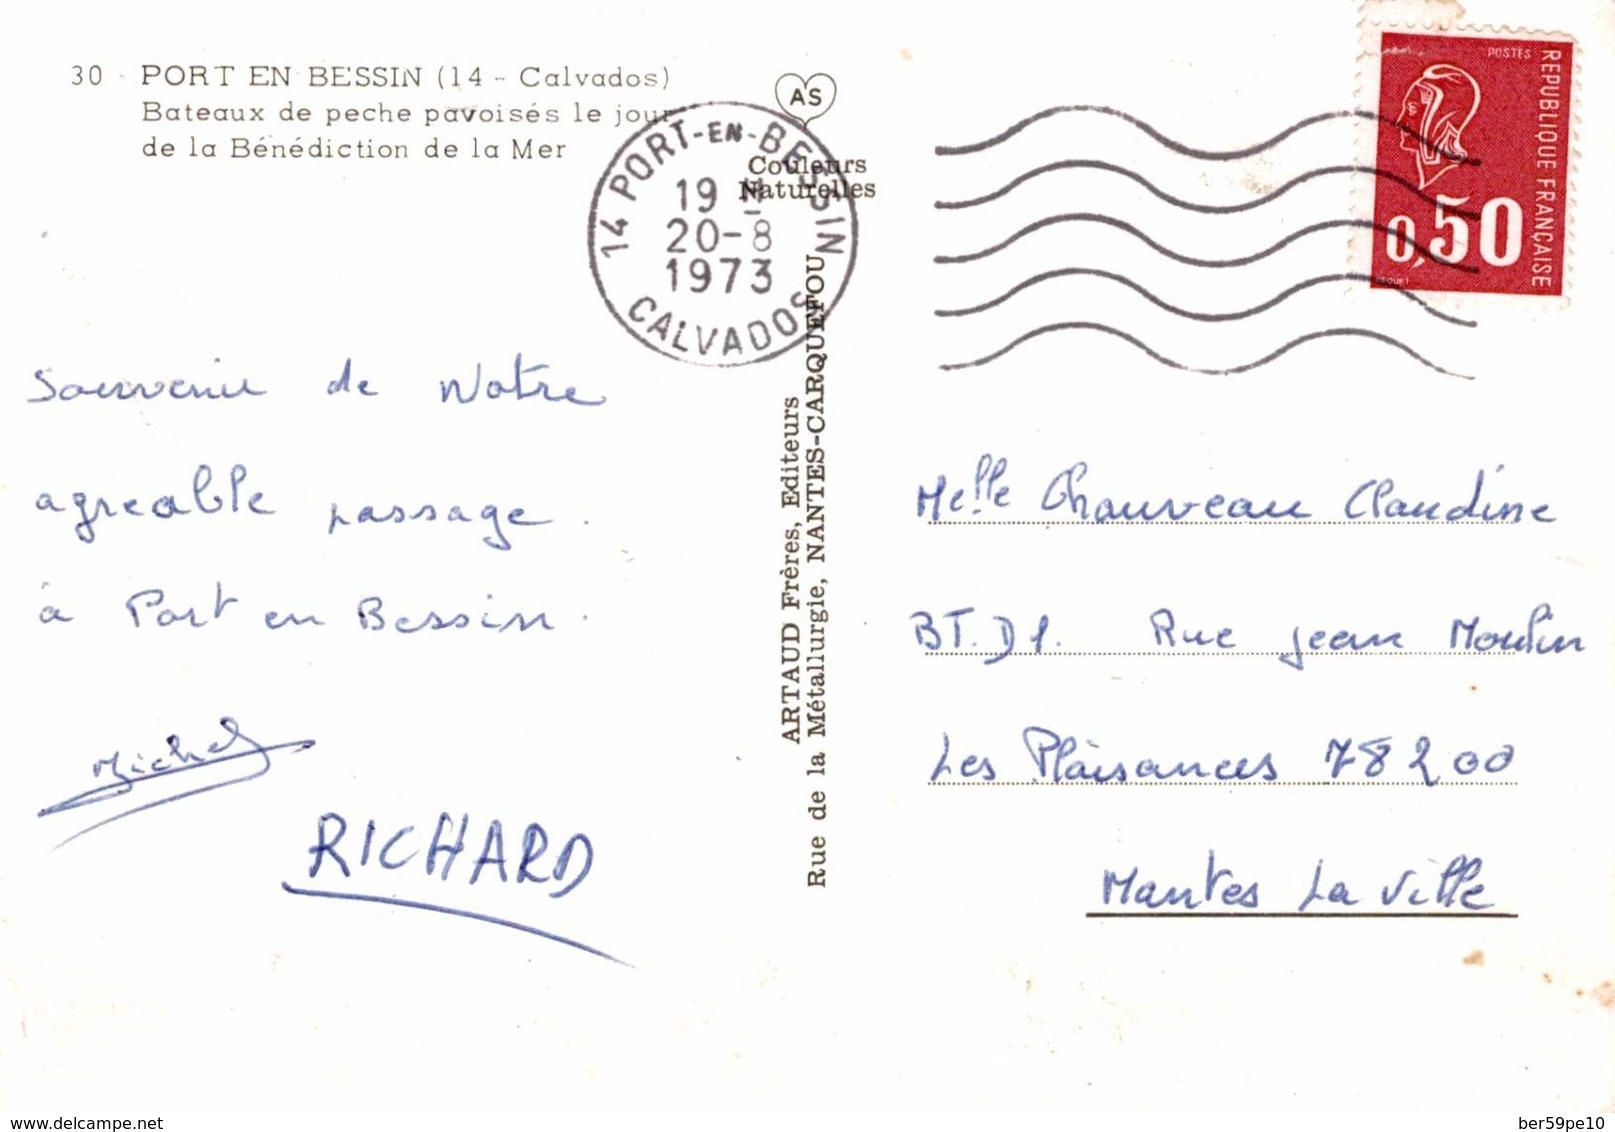 30 - PORT EN BESSIN (14 - Calvados)
Bateaux de peche pavoisés le jour
de la Bénédiction de la Mer
AS
Couleurs
Naturelles
14 PORT-EN-BESSIN
19 H
20-8
1973
CALVADOS
POSTES
REPUBLIQUE FRANÇAISE
0,50
Souvenir de Notre
agreable passage.
à Port en Bessin.
Michel
RICHARD
ARTAUD Frères, Editeurs
Rue de la Métallurgie, NANTES-CARQUEFOU
Melle Chauveau Claudine
BT.D1. Rue Jean Moulin
Les Plaisances 78200
Mantes La Ville
www.delcampe.net
ber59pe10